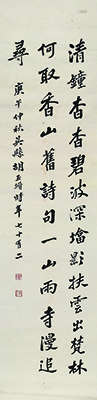 清鐘杳杳碧波深墖影扶雲出梵林
何取香山舊詩句一山雨寺漫追
尋
庚午仲秋吳縣胡玉縉時年七十有二